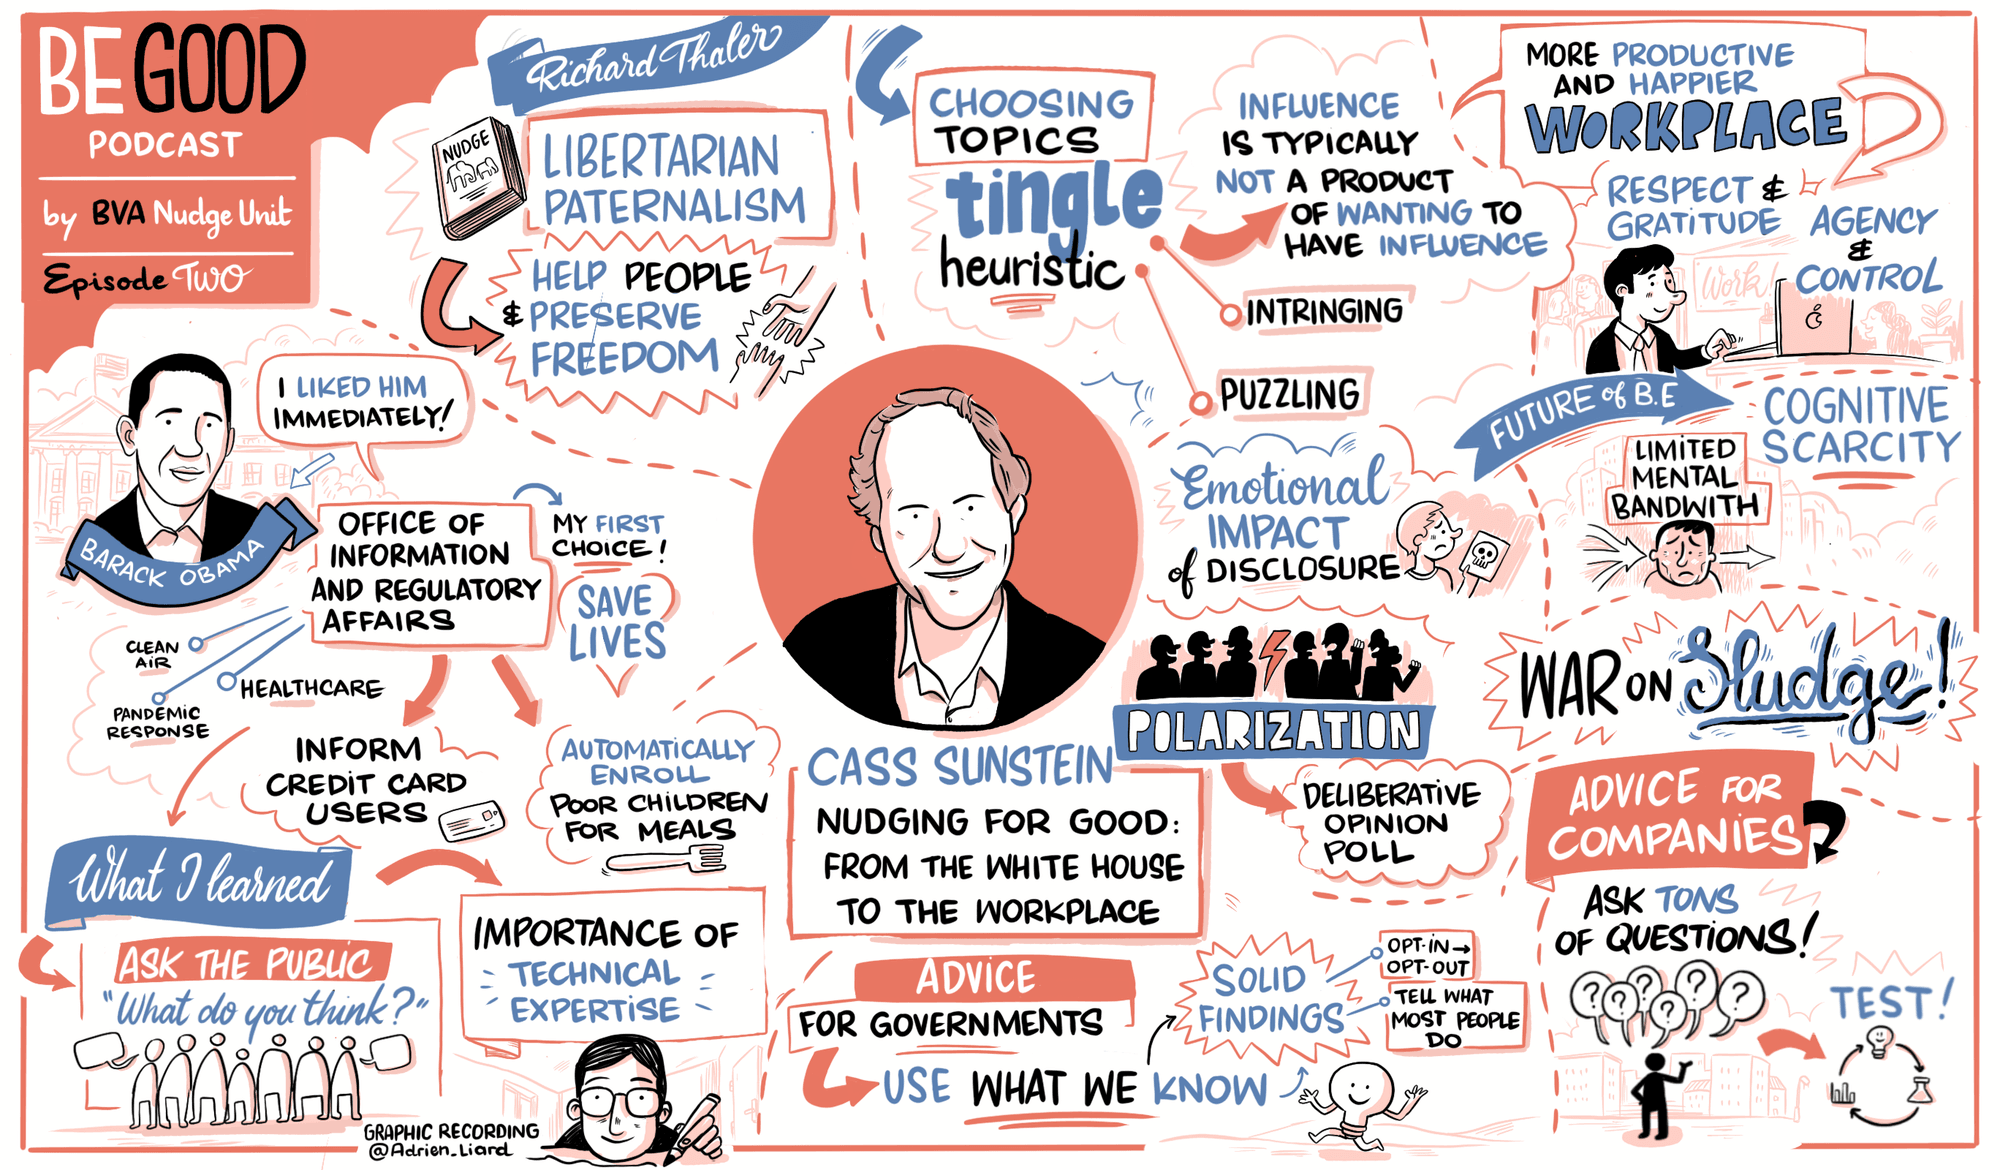 BE GOOD
PODCAST
by BVA Nudge Unit
Episode TWO
Richard Thaler
NUDGE
LIBERTARIAN
PATERNALISM
HELP PEOPLE
& PRESERVE
FREEDOM
I LIKED HIM
IMMEDIATELY!
BARACK OBAMA
OFFICE OF
INFORMATION
AND REGULATORY
AFFAIRS
MY FIRST
CHOICE!
SAVE
LIVES
CLEAN
AIR
HEALTHCARE
PANDEMIC
RESPONSE
INFORM
CREDIT CARD
USERS
AUTOMATICALLY
ENROLL
POOR CHILDREN
FOR MEALS
What I learned
ASK THE PUBLIC
"What do you think?"
IMPORTANCE OF
TECHNICAL
EXPERTISE
GRAPHIC RECORDING
@Adrien_Liard
CHOOSING
TOPICS
tingle
heuristic
INFLUENCE
IS TYPICALLY
NOT A PRODUCT
OF WANTING TO
HAVE INFLUENCE
INTRINGING
PUZZLING
Emotional
IMPACT
of DISCLOSURE
POLARIZATION
DELIBERATIVE
OPINION
POLL
CASS SUNSTEIN
NUDGING FOR GOOD:
FROM THE WHITE HOUSE
TO THE WORKPLACE
ADVICE
FOR GOVERNMENTS
USE WHAT WE KNOW
SOLID
FINDINGS
OPT-IN →
OPT-OUT
TELL WHAT
MOST PEOPLE
DO
MORE PRODUCTIVE
AND HAPPIER
WORKPLACE
RESPECT &
GRATITUDE
AGENCY
&
CONTROL
Work!
FUTURE of B.E
COGNITIVE
SCARCITY
LIMITED
MENTAL
BANDWITH
WAR ON Sludge!
ADVICE FOR
COMPANIES
ASK TONS
OF QUESTIONS!
? ? ? ? ? ?
TEST!